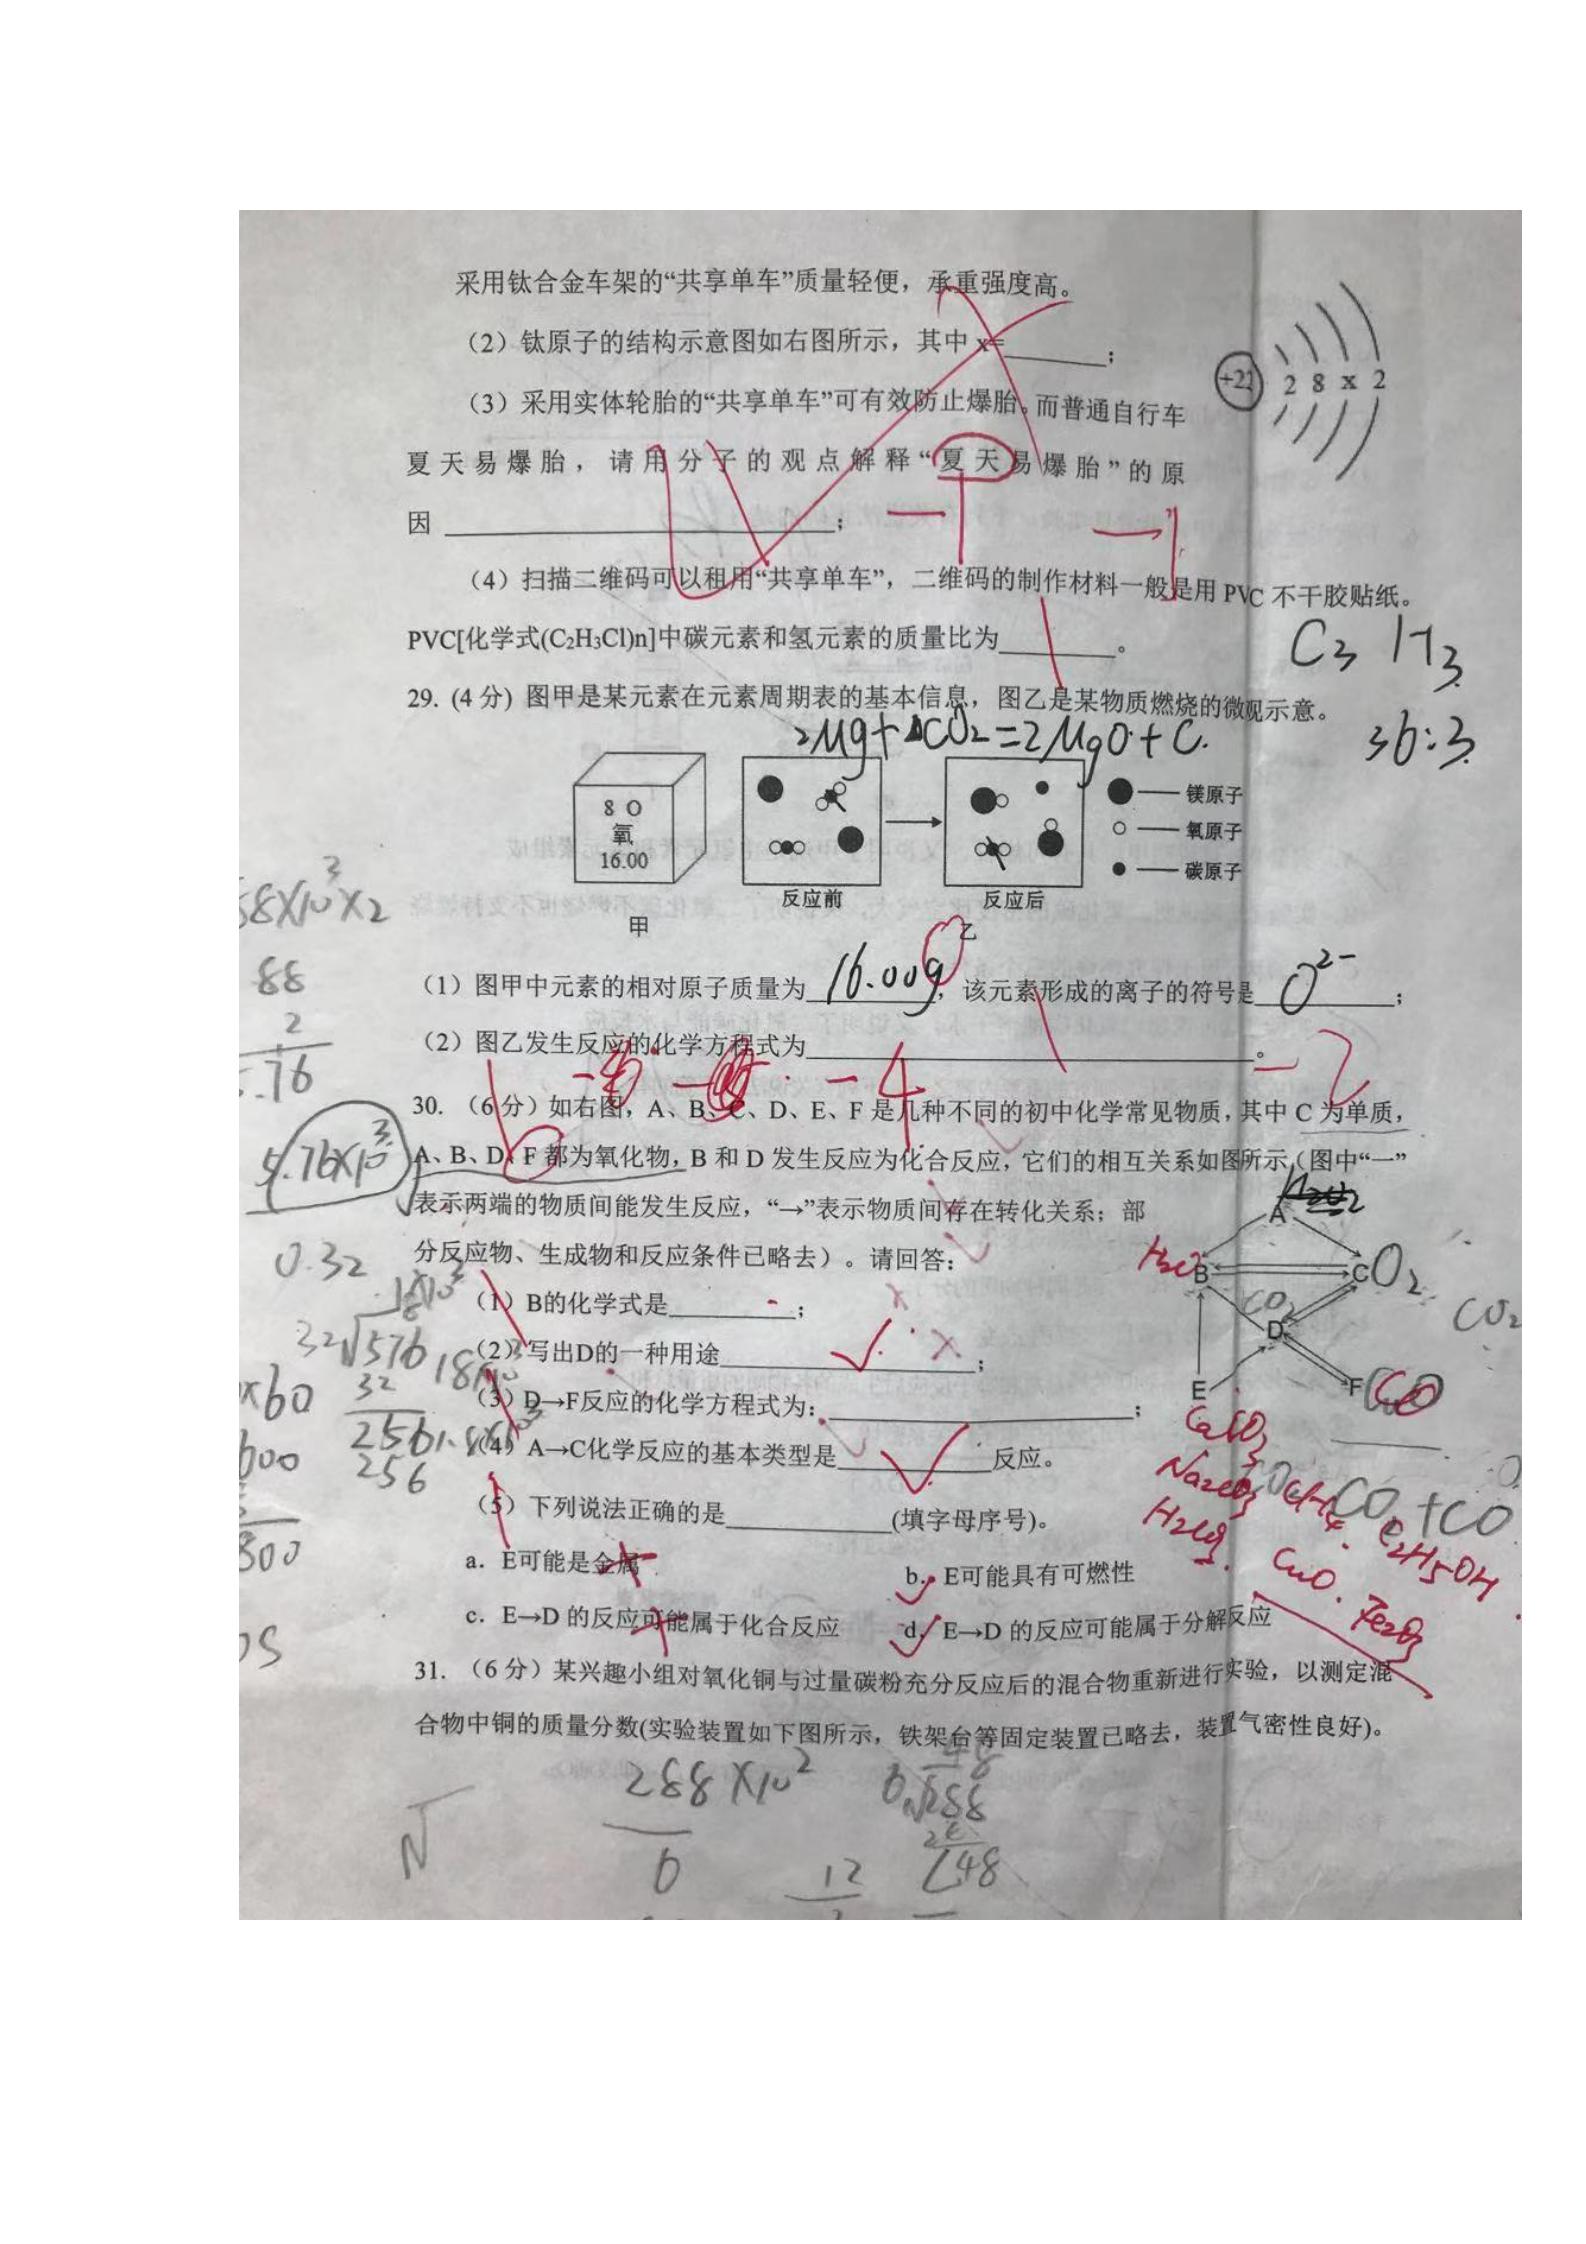 采用钛合金车架的“共享单车”质量轻便，承重强度高。
（2）钛原子的结构示意图如右图所示，其中 x=______；
+22 2 8 x 2
（3）采用实体轮胎的“共享单车”可有效防止爆胎。而普通自行车
夏天易爆胎，请用分子的观点解释“夏天易爆胎”的原
因______；
-1 -1
（4）扫描二维码可以租用“共享单车”，二维码的制作材料一般是用 PVC 不干胶贴纸。
PVC[化学式(C2H3Cl)n]中碳元素和氢元素的质量比为______。
C3 H3
36:3
29. (4 分) 图甲是某元素在元素周期表的基本信息，图乙是某物质燃烧的微观示意。
2Mg+CO2=2MgO+C.
8 O
氧
16.00
甲
反应前
反应后
乙
镁原子
氧原子
碳原子
58X10³X2
88
2
5.76
5.76X10³
（1）图甲中元素的相对原子质量为16.00g，该元素形成的离子的符号是O²⁻；
（2）图乙发生反应的化学方程式为______。
-4 -2
30. （6分）如右图，A、B、C、D、E、F 是几种不同的初中化学常见物质，其中 C 为单质，
A、B、D、F 都为氧化物，B 和 D 发生反应为化合反应，它们的相互关系如图所示（图中“—”
表示两端的物质间能发生反应，“→”表示物质间存在转化关系；部
分反应物、生成物和反应条件已略去）。请回答：
A
H2O B C O2
CO2 D
E F CO
CO2
0.32
32 576
32
256
256
x60
600
300
（1）B的化学式是______；
（2）写出D的一种用途______；
（3）D→F反应的化学方程式为：______；
（4）A→C化学反应的基本类型是______反应。
（5）下列说法正确的是______(填字母序号)。
CaCO3
Na2CO3 CH4
H2CO3 C2H5OH
CO2+CO
CuO. Fe2O3
a．E可能是金属
b．E可能具有可燃性
c．E→D 的反应可能属于化合反应
d．E→D 的反应可能属于分解反应
31. （6分）某兴趣小组对氧化铜与过量碳粉充分反应后的混合物重新进行实验，以测定混
合物中铜的质量分数(实验装置如下图所示，铁架台等固定装置已略去，装置气密性良好)。
288X10²
6
48
6 288
24
48
12